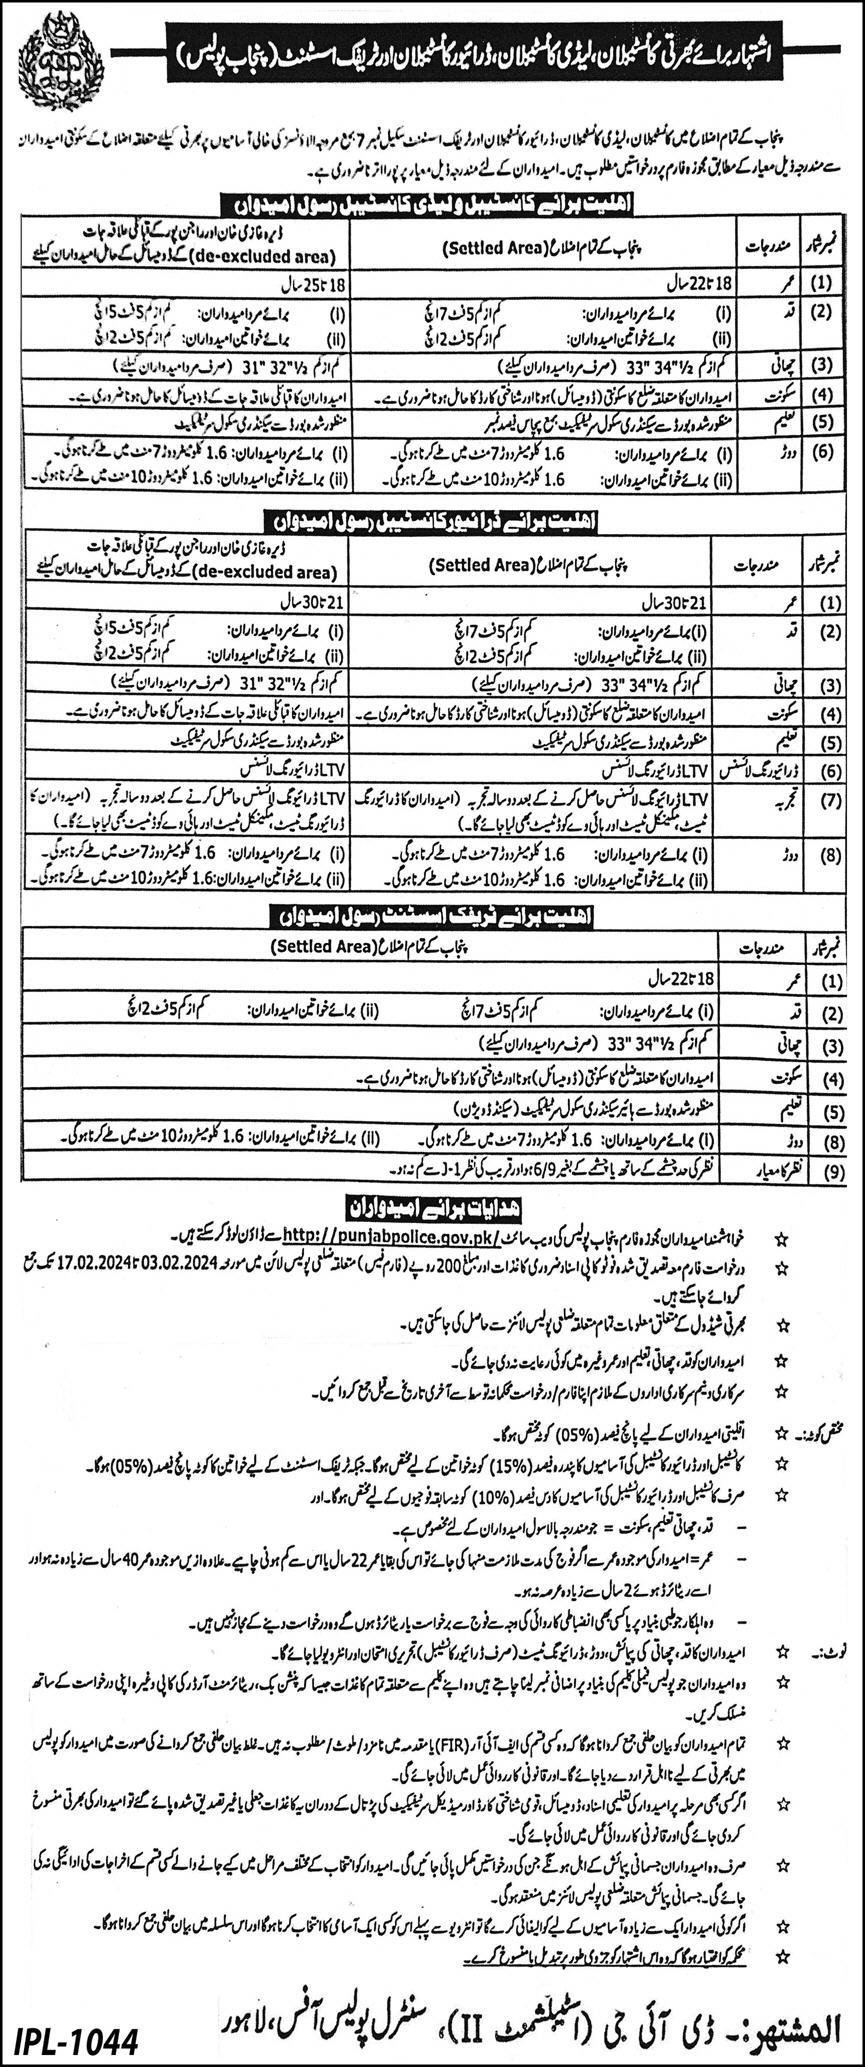 اشتہار برائے بھرتی کانسٹیبلان، لیڈی کانسٹیبلان، ڈرائیور کانسٹیبلان اور ٹریفک اسسٹنٹ (پنجاب پولیس)
پنجاب کے تمام اضلاع میں کانسٹیبلان، لیڈی کانسٹیبلان، ڈرائیور کانسٹیبلان اور ٹریفک اسسٹنٹ سکیل نمبر 7 بمع مروجہ الاؤنسز کی خالی آسامیوں پر بھرتی کیلئے متعلقہ اضلاع کے سکونتی امیدواران
سے مندرجہ ذیل معیار کے مطابق مجوزہ فارم پر درخواستیں مطلوب ہیں۔ امیدواران کے لئے مندرجہ ذیل معیار پر پورا اترنا ضروری ہے۔
اہلیت برائے کانسٹیبل و لیڈی کانسٹیبل (سول امیدوار)
نمبر شمار مندرجات پنجاب کے تمام اضلاع (Settled Area) ڈیرہ غازی خان اور راجن پور کے قبائلی علاقہ جات
(de-excluded area) کے ڈومیسائل کے حامل امیدواران کیلئے
(1) عمر 18 تا 22 سال 18 تا 25 سال
(2) قد (i) برائے مرد امیدواران: کم از کم 5 فٹ 7 انچ (i) برائے مرد امیدواران: کم از کم 5 فٹ 5 انچ
(ii) برائے خواتین امیدواران: کم از کم 5 فٹ 2 انچ (ii) برائے خواتین امیدواران: کم از کم 5 فٹ 2 انچ
(3) چھاتی کم از کم 33" 34"½ (صرف مرد امیدواران کیلئے) کم از کم 31" 32"½ (صرف مرد امیدواران کیلئے)
(4) سکونت امیدواران کا متعلقہ ضلع کا سکونتی (ڈومیسائل) ہونا اور شناختی کارڈ کا حامل ہونا ضروری ہے۔ امیدواران کا قبائلی علاقہ جات کے ڈومیسائل کا حامل ہونا ضروری ہے۔
(5) تعلیم منظور شدہ بورڈ سے سیکنڈری سکول سرٹیفکیٹ بمع پچاس فیصد نمبر منظور شدہ بورڈ سے سیکنڈری سکول سرٹیفکیٹ
(6) دوڑ (i) برائے مرد امیدواران: 1.6 کلومیٹر دوڑ 7 منٹ میں طے کرنا ہوگی۔ (i) برائے مرد امیدواران: 1.6 کلومیٹر دوڑ 7 منٹ میں طے کرنا ہوگی۔
(ii) برائے خواتین امیدواران: 1.6 کلومیٹر دوڑ 10 منٹ میں طے کرنا ہوگی۔ (ii) برائے خواتین امیدواران: 1.6 کلومیٹر دوڑ 10 منٹ میں طے کرنا ہوگی۔
اہلیت برائے ڈرائیور کانسٹیبل (سول امیدوار)
نمبر شمار مندرجات پنجاب کے تمام اضلاع (Settled Area) ڈیرہ غازی خان اور راجن پور کے قبائلی علاقہ جات
(de-excluded area) کے ڈومیسائل کے حامل امیدواران کیلئے
(1) عمر 21 تا 30 سال 21 تا 30 سال
(2) قد (i) برائے مرد امیدواران: کم از کم 5 فٹ 7 انچ (i) برائے مرد امیدواران: کم از کم 5 فٹ 5 انچ
(ii) برائے خواتین امیدواران: کم از کم 5 فٹ 2 انچ (ii) برائے خواتین امیدواران: کم از کم 5 فٹ 2 انچ
(3) چھاتی کم از کم 33" 34"½ (صرف مرد امیدواران کیلئے) کم از کم 31" 32"½ (صرف مرد امیدواران کیلئے)
(4) سکونت امیدواران کا متعلقہ ضلع کا سکونتی (ڈومیسائل) ہونا اور شناختی کارڈ کا حامل ہونا ضروری ہے۔ امیدواران کا قبائلی علاقہ جات کے ڈومیسائل کا حامل ہونا ضروری ہے۔
(5) تعلیم منظور شدہ بورڈ سے سیکنڈری سکول سرٹیفکیٹ منظور شدہ بورڈ سے سیکنڈری سکول سرٹیفکیٹ
(6) ڈرائیونگ لائسنس LTV ڈرائیونگ لائسنس LTV ڈرائیونگ لائسنس
(7) تجربہ LTV ڈرائیونگ لائسنس حاصل کرنے کے بعد دو سالہ تجربہ (امیدواران کا ڈرائیونگ LTV ڈرائیونگ لائسنس حاصل کرنے کے بعد دو سالہ تجربہ (امیدواران کا
ٹیسٹ، مکینیکل ٹیسٹ اور ہائی وے کوڈ ٹیسٹ بھی لیا جائے گا۔) ڈرائیونگ ٹیسٹ، مکینیکل ٹیسٹ اور ہائی وے کوڈ ٹیسٹ بھی لیا جائے گا۔)
(8) دوڑ (i) برائے مرد امیدواران: 1.6 کلومیٹر دوڑ 7 منٹ میں طے کرنا ہوگی۔ (i) برائے مرد امیدواران: 1.6 کلومیٹر دوڑ 7 منٹ میں طے کرنا ہوگی۔
(ii) برائے خواتین امیدواران: 1.6 کلومیٹر دوڑ 10 منٹ میں طے کرنا ہوگی۔ (ii) برائے خواتین امیدواران: 1.6 کلومیٹر دوڑ 10 منٹ میں طے کرنا ہوگی۔
اہلیت برائے ٹریفک اسسٹنٹ (سول امیدوار)
نمبر شمار مندرجات پنجاب کے تمام اضلاع (Settled Area)
(1) عمر 18 تا 22 سال
(2) قد (i) برائے مرد امیدواران: کم از کم 5 فٹ 7 انچ (ii) برائے خواتین امیدواران: کم از کم 5 فٹ 2 انچ
(3) چھاتی کم از کم 33" 34"½ (صرف مرد امیدواران کیلئے)
(4) سکونت امیدواران کا متعلقہ ضلع کا سکونتی (ڈومیسائل) ہونا اور شناختی کارڈ کا حامل ہونا ضروری ہے۔
(5) تعلیم منظور شدہ بورڈ سے ہائیر سیکنڈری سکول سرٹیفکیٹ (سیکنڈ ڈویژن)
(8) دوڑ (i) برائے مرد امیدواران: 1.6 کلومیٹر دوڑ 7 منٹ میں طے کرنا ہوگی۔ (ii) برائے خواتین امیدواران: 1.6 کلومیٹر دوڑ 10 منٹ میں طے کرنا ہوگی۔
(9) نظر کا معیار نظر کی حد چشمے کے ساتھ یا چشمے کے بغیر 6/9 ہو اور قریب کی نظر J-1 سے کم نہ ہو۔
ھدایات برائے امیدواران
☆ خواہشمند امیدواران مجوزہ فارم پنجاب پولیس کی ویب سائٹ http://punjabpolice.gov.pk/ سے ڈاؤن لوڈ کر سکتے ہیں۔
☆ درخواست فارم معہ تصدیق شدہ فوٹو کاپی اسناد ضروری کاغذات اور مبلغ 200 روپے (فارم فیس) متعلقہ ضلعی پولیس لائن میں مورخہ 03.02.2024 تا 17.02.2024 تک جمع
کروائے جا سکتے ہیں۔
☆ بھرتی شیڈول کے متعلق معلومات تمام متعلقہ ضلعی پولیس لائنز سے حاصل کی جا سکتی ہیں۔
☆ امیدواران کو قد، چھاتی، تعلیم اور عمر وغیرہ میں کوئی رعایت نہ دی جائے گی۔
☆ سرکاری و نیم سرکاری اداروں کے ملازم اپنا فارم/درخواست محکمانہ توسط سے آخری تاریخ سے قبل جمع کروائیں۔
مختص کوٹہ:۔ ☆ اقلیتی امیدواران کے لیے پانچ فیصد (05%) کوٹہ مختص ہوگا۔
☆ کانسٹیبل اور ڈرائیور کانسٹیبل کی آسامیوں کا پندرہ فیصد (15%) کوٹہ خواتین کے لیے مختص ہوگا۔ جبکہ ٹریفک اسسٹنٹ کے لیے خواتین کا کوٹہ پانچ فیصد (05%) ہوگا۔
☆ صرف کانسٹیبل اور ڈرائیور کانسٹیبل کی آسامیوں کا دس فیصد (10%) کوٹہ سابقہ فوجیوں کے لیے مختص ہوگا۔ اور
- قد، چھاتی، تعلیم، سکونت = جو مندرجہ بالا سول امیدواران کے لئے مخصوص ہے۔
- عمر = امیدوار کی موجودہ عمر سے اگر فوج کی مدت ملازمت منہا کی جائے تو اس کی بقایا عمر 22 سال یا اس سے کم ہونی چاہیے۔ علاوہ ازیں موجودہ عمر 40 سال سے زیادہ نہ ہو اور
اسے ریٹائرڈ ہوئے 2 سال سے زیادہ عرصہ نہ ہو۔
- وہ اہلکار جو طبی بنیاد پر یا کسی بھی انضباطی کاروائی کی وجہ سے فوج سے برخواست یا ریٹائرڈ ہوں گے وہ درخواست دینے کے مجاز نہیں ہیں۔
نوٹ:۔ ☆ امیدواران کا قد، چھاتی کی پیمائش، دوڑ، ڈرائیونگ ٹیسٹ (صرف ڈرائیور کانسٹیبل) تحریری امتحان اور انٹرویو لیا جائے گا۔
☆ وہ امیدواران جو پولیس فیملی کلیم کی بنیاد پر اضافی نمبر لینا چاہتے ہیں وہ اپنے کلیم سے متعلقہ تمام کاغذات جیسا کہ پنشن بک، ریٹائرمنٹ آرڈر کی کاپی وغیرہ اپنی درخواست کے ساتھ
منسلک کریں۔
☆ تمام امیدواران کو بیان حلفی جمع کروانا ہوگا کہ وہ کسی قسم کی ایف آئی آر (FIR) یا مقدمہ میں نامزد/ملوث/مطلوب نہ ہیں۔ غلط بیان حلفی جمع کروانے کی صورت میں امیدوار کو پولیس
میں بھرتی کے لیے نا اہل قرار دے دیا جائے گا۔ اور قانونی کارروائی عمل میں لائی جائے گی۔
☆ اگر کسی بھی مرحلہ پر امیدوار کی تعلیمی اسناد، ڈومیسائل، قومی شناختی کارڈ اور میڈیکل سرٹیفکیٹ کی پڑتال کے دوران یہ کاغذات جعلی یا غیر تصدیق شدہ پائے گئے تو امیدوار کی بھرتی منسوخ
کر دی جائے گی اور قانونی کارروائی عمل میں لائی جائے گی۔
☆ صرف وہ امیدواران جسمانی پیمائش کے اہل ہونگے جن کی درخواستیں مکمل پائی جائیں گی۔ امیدوار کو انتخاب کے مختلف مراحل میں کیے جانے والے کسی قسم کے اخراجات کی ادائیگی نہ کی
جائے گی۔ جسمانی پیمائش متعلقہ ضلعی پولیس لائنز میں منعقد ہوگی۔
☆ اگر کوئی امیدوار ایک سے زیادہ آسامیوں کے لیے کوالیفائی کرے گا تو انٹرویو سے پہلے اس کو کسی ایک آسامی کا انتخاب کرنا ہوگا اور اس سلسلہ میں بیان حلفی جمع کروانا ہوگا۔
☆ محکمہ کو اختیار ہوگا کہ وہ اس اشتہار کو جزوی طور پر تبدیل یا منسوخ کرے۔
المشتھر:۔ ڈی آئی جی (اسٹیبلشمنٹ II)، سنٹرل پولیس آفس، لاہور
IPL-1044